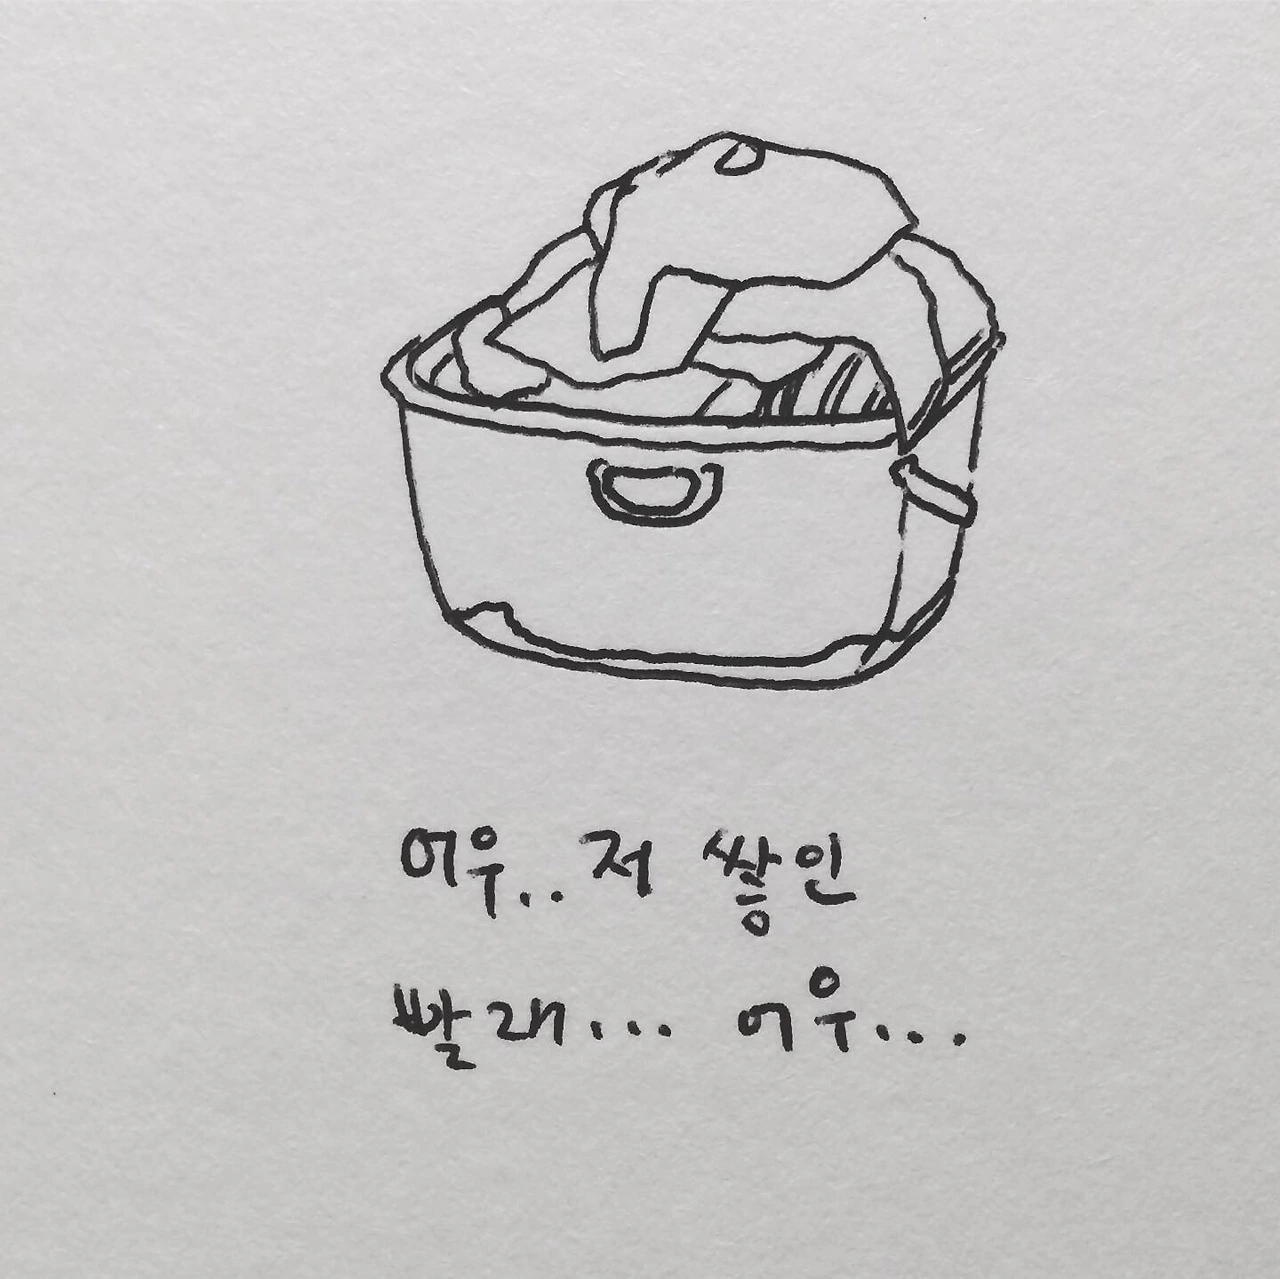 어우.. 저 쌓인
빨래... 어우...